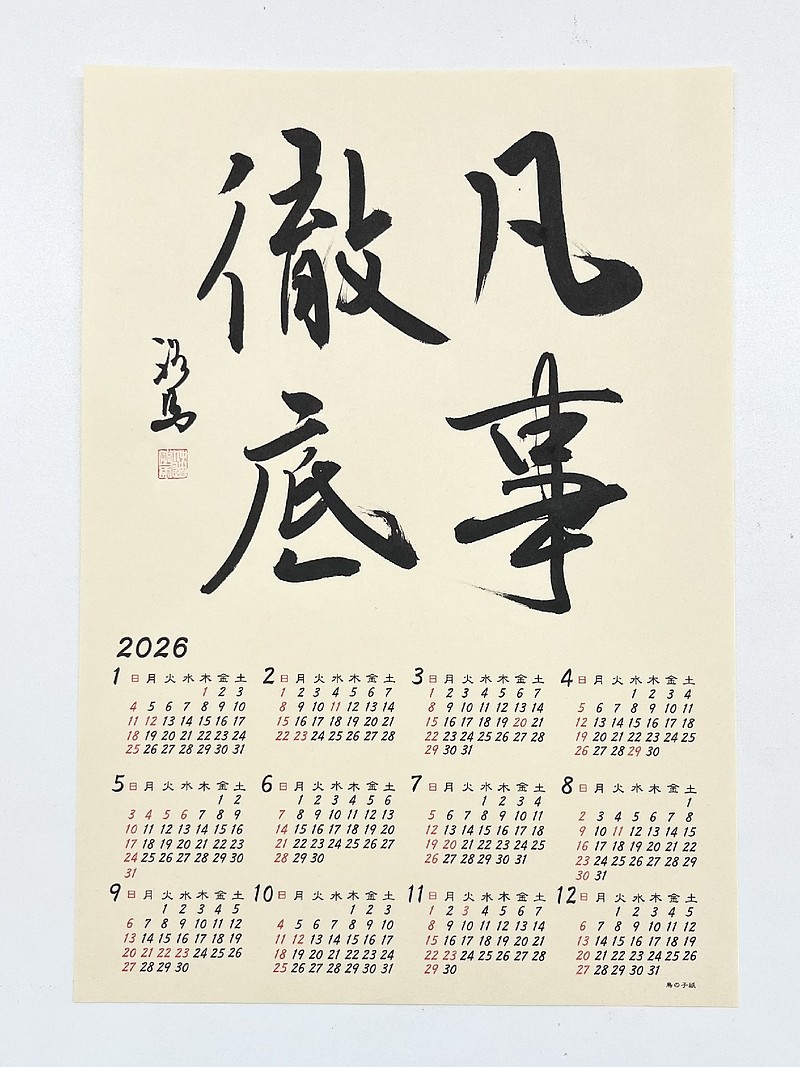 凡事
徹底
2026
1 日 月 火 水 木 金 土
1 2 3
4 5 6 7 8 9 10
11 12 13 14 15 16 17
18 19 20 21 22 23 24
25 26 27 28 29 30 31
2 日 月 火 水 木 金 土
1 2 3 4 5 6 7
8 9 10 11 12 13 14
15 16 17 18 19 20 21
22 23 24 25 26 27 28
3 日 月 火 水 木 金 土
1 2 3 4 5 6 7
8 9 10 11 12 13 14
15 16 17 18 19 20 21
22 23 24 25 26 27 28
29 30 31
4 日 月 火 水 木 金 土
1 2 3 4
5 6 7 8 9 10 11
12 13 14 15 16 17 18
19 20 21 22 23 24 25
26 27 28 29 30
5 日 月 火 水 木 金 土
1 2
3 4 5 6 7 8 9
10 11 12 13 14 15 16
17 18 19 20 21 22 23
24 25 26 27 28 29 30
31
6 日 月 火 水 木 金 土
1 2 3 4 5 6
7 8 9 10 11 12 13
14 15 16 17 18 19 20
21 22 23 24 25 26 27
28 29 30
7 日 月 火 水 木 金 土
1 2 3 4
5 6 7 8 9 10 11
12 13 14 15 16 17 18
19 20 21 22 23 24 25
26 27 28 29 30 31
8 日 月 火 水 木 金 土
1
2 3 4 5 6 7 8
9 10 11 12 13 14 15
16 17 18 19 20 21 22
23 24 25 26 27 28 29
30 31
9 日 月 火 水 木 金 土
1 2 3 4 5
6 7 8 9 10 11 12
13 14 15 16 17 18 19
20 21 22 23 24 25 26
27 28 29 30
10 日 月 火 水 木 金 土
1 2 3
4 5 6 7 8 9 10
11 12 13 14 15 16 17
18 19 20 21 22 23 24
25 26 27 28 29 30 31
11 日 月 火 水 木 金 土
1 2 3 4 5 6 7
8 9 10 11 12 13 14
15 16 17 18 19 20 21
22 23 24 25 26 27 28
29 30
12 日 月 火 水 木 金 土
1 2 3 4 5
6 7 8 9 10 11 12
13 14 15 16 17 18 19
20 21 22 23 24 25 26
27 28 29 30 31
鳥の子紙